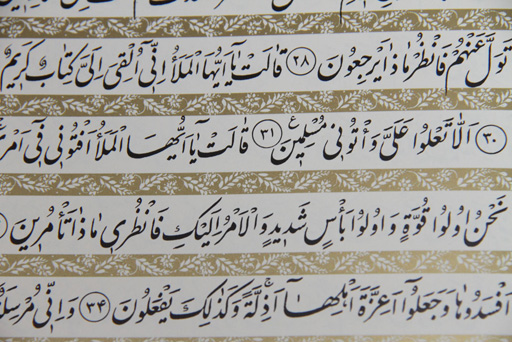 تَوَلَّ عَنْهُمْ فَانْظُرْ مَاذَا يَرْجِعُونَ ﴿٢٨﴾ قَالَتْ يَآ اَيُّهَا الْمَلَأُ اِنّ۪ٓي اُلْقِيَ اِلَيَّ كِتَابٌ كَر۪يمٌ
﴿٣٠﴾ اَلَّا تَعْلُوا عَلَيَّ وَأْتُون۪ي مُسْلِم۪ينَ ﴿٣١﴾ قَالَتْ يَآ اَيُّهَا الْمَلَأُ اَفْتُون۪ي ف۪ٓي
نَحْنُ اُولُوا قُوَّةٍ وَاُولُوا بَأْسٍ شَد۪يدٍ وَالْاَمْرُ اِلَيْكِ فَانْظُر۪ي مَاذَا تَأْمُر۪ينَ
اَفْسَدُوهَا وَجَعَلُٓوا اَعِزَّةَ اَهْلِهَٓا اَذِلَّةً وَكَذٰلِكَ يَفْعَلُونَ ﴿٣٤﴾ وَاِنّ۪ي